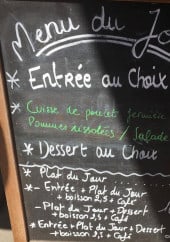 Menu du Jo
* Entrée au Choix
* Cuisse de poulet fermier
Pommes rissolées / Salade
* Dessert au Choix
* Plat du Jour
* - Entrée + Plat du Jour
+ boisson 2,5 + Café
- Plat du Jour + Dessert
+ boisson 2,5 + Café
* Entrée + Plat du Jour + Dessert
+ boisson 2,5 + Café